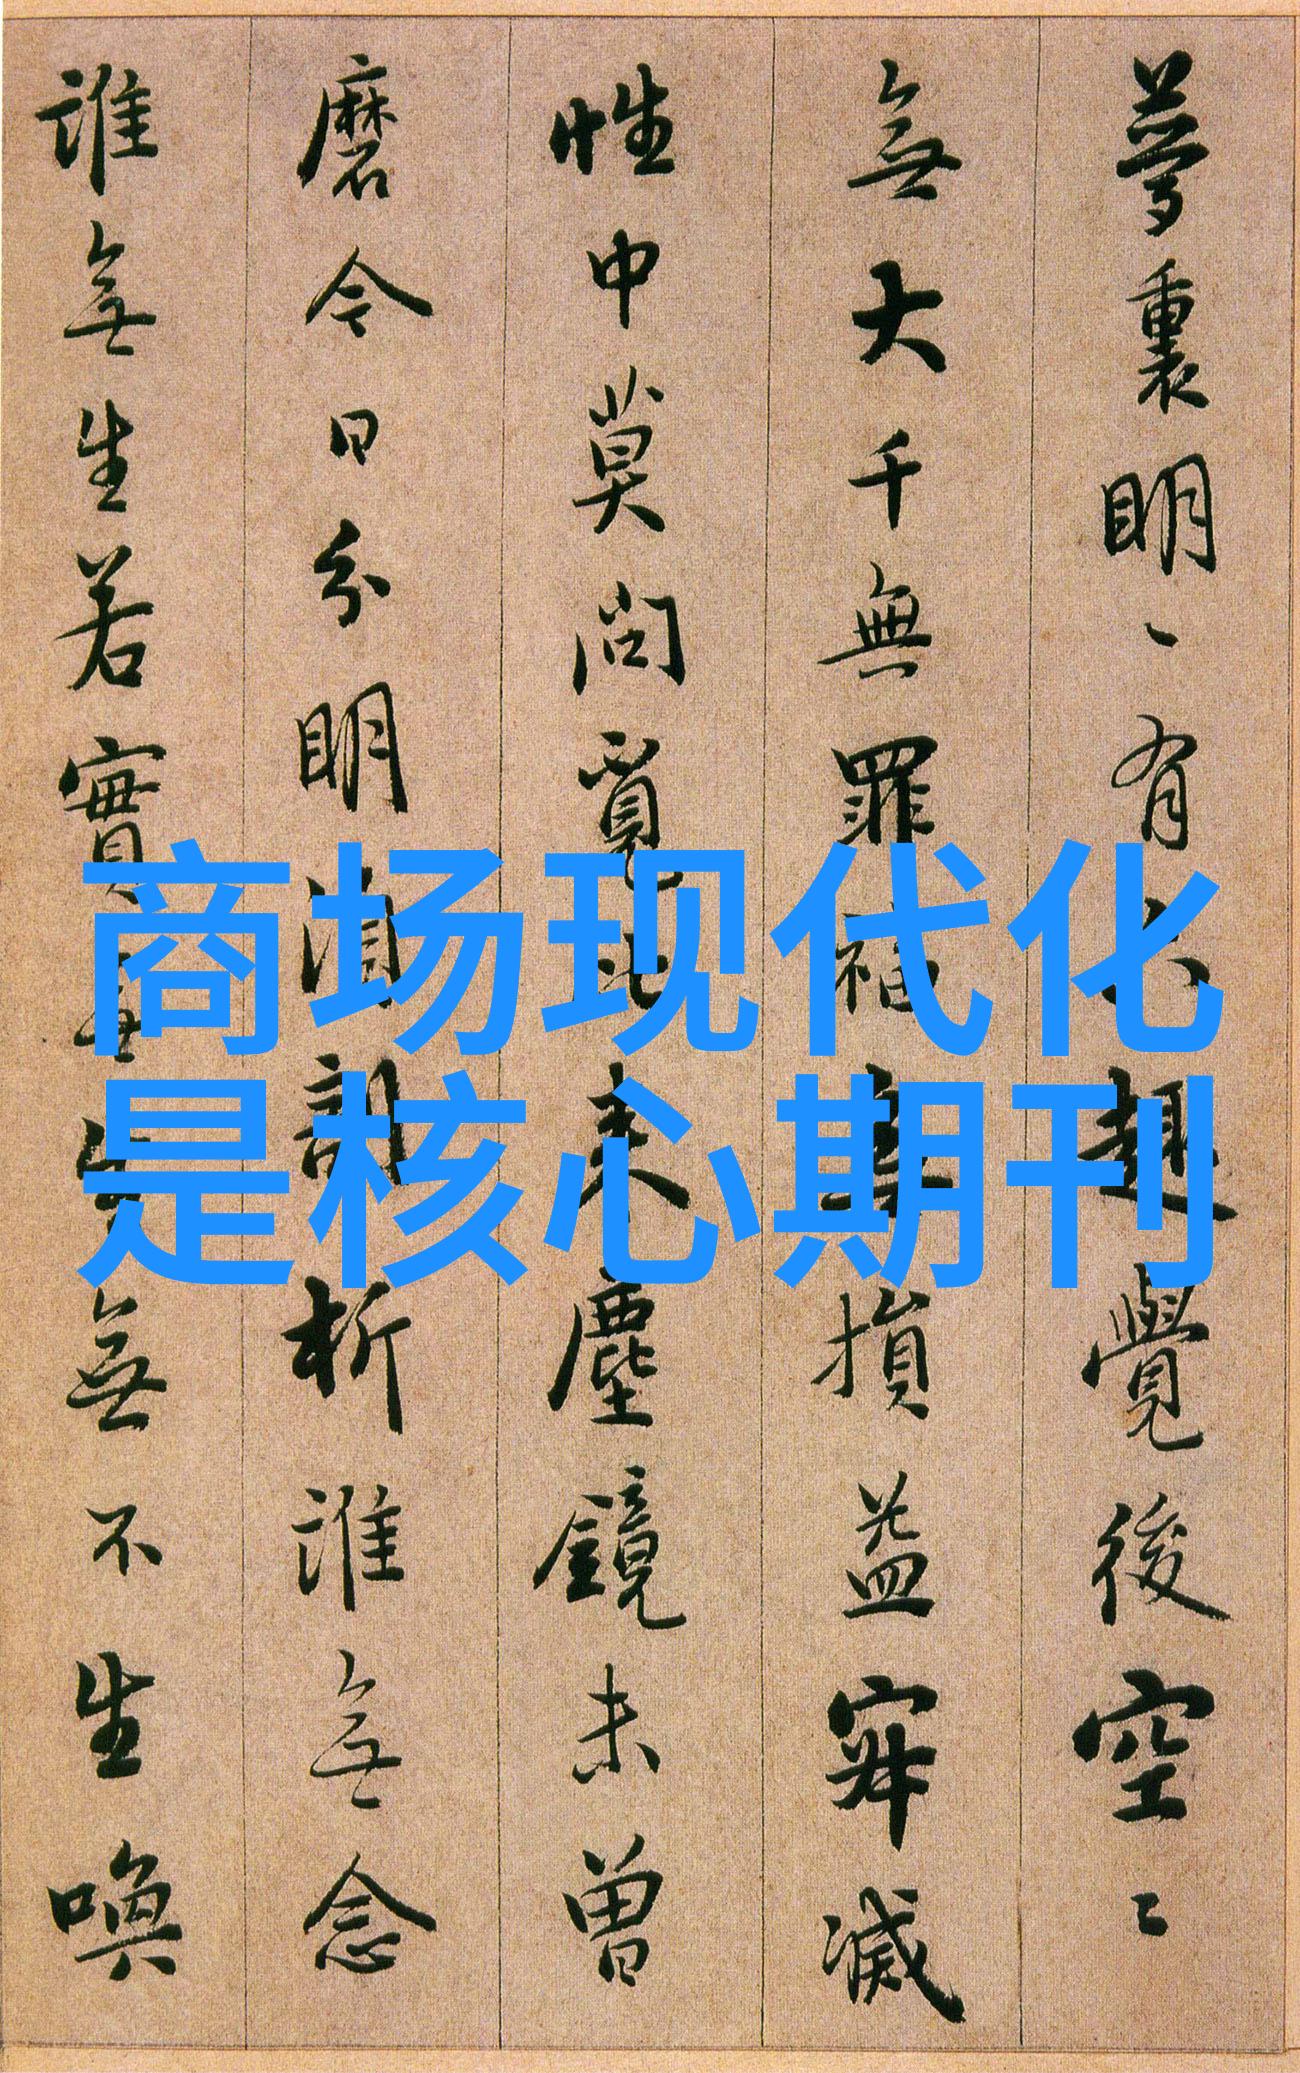 商场现代化
是核心期刊
夢裏明〻有六趣覺後空〻
無大千無罪福無損益寂滅
性中莫問覓比來塵鏡未曾
磨今日分明須剖析誰無念
誰無生若實無生無不生喚